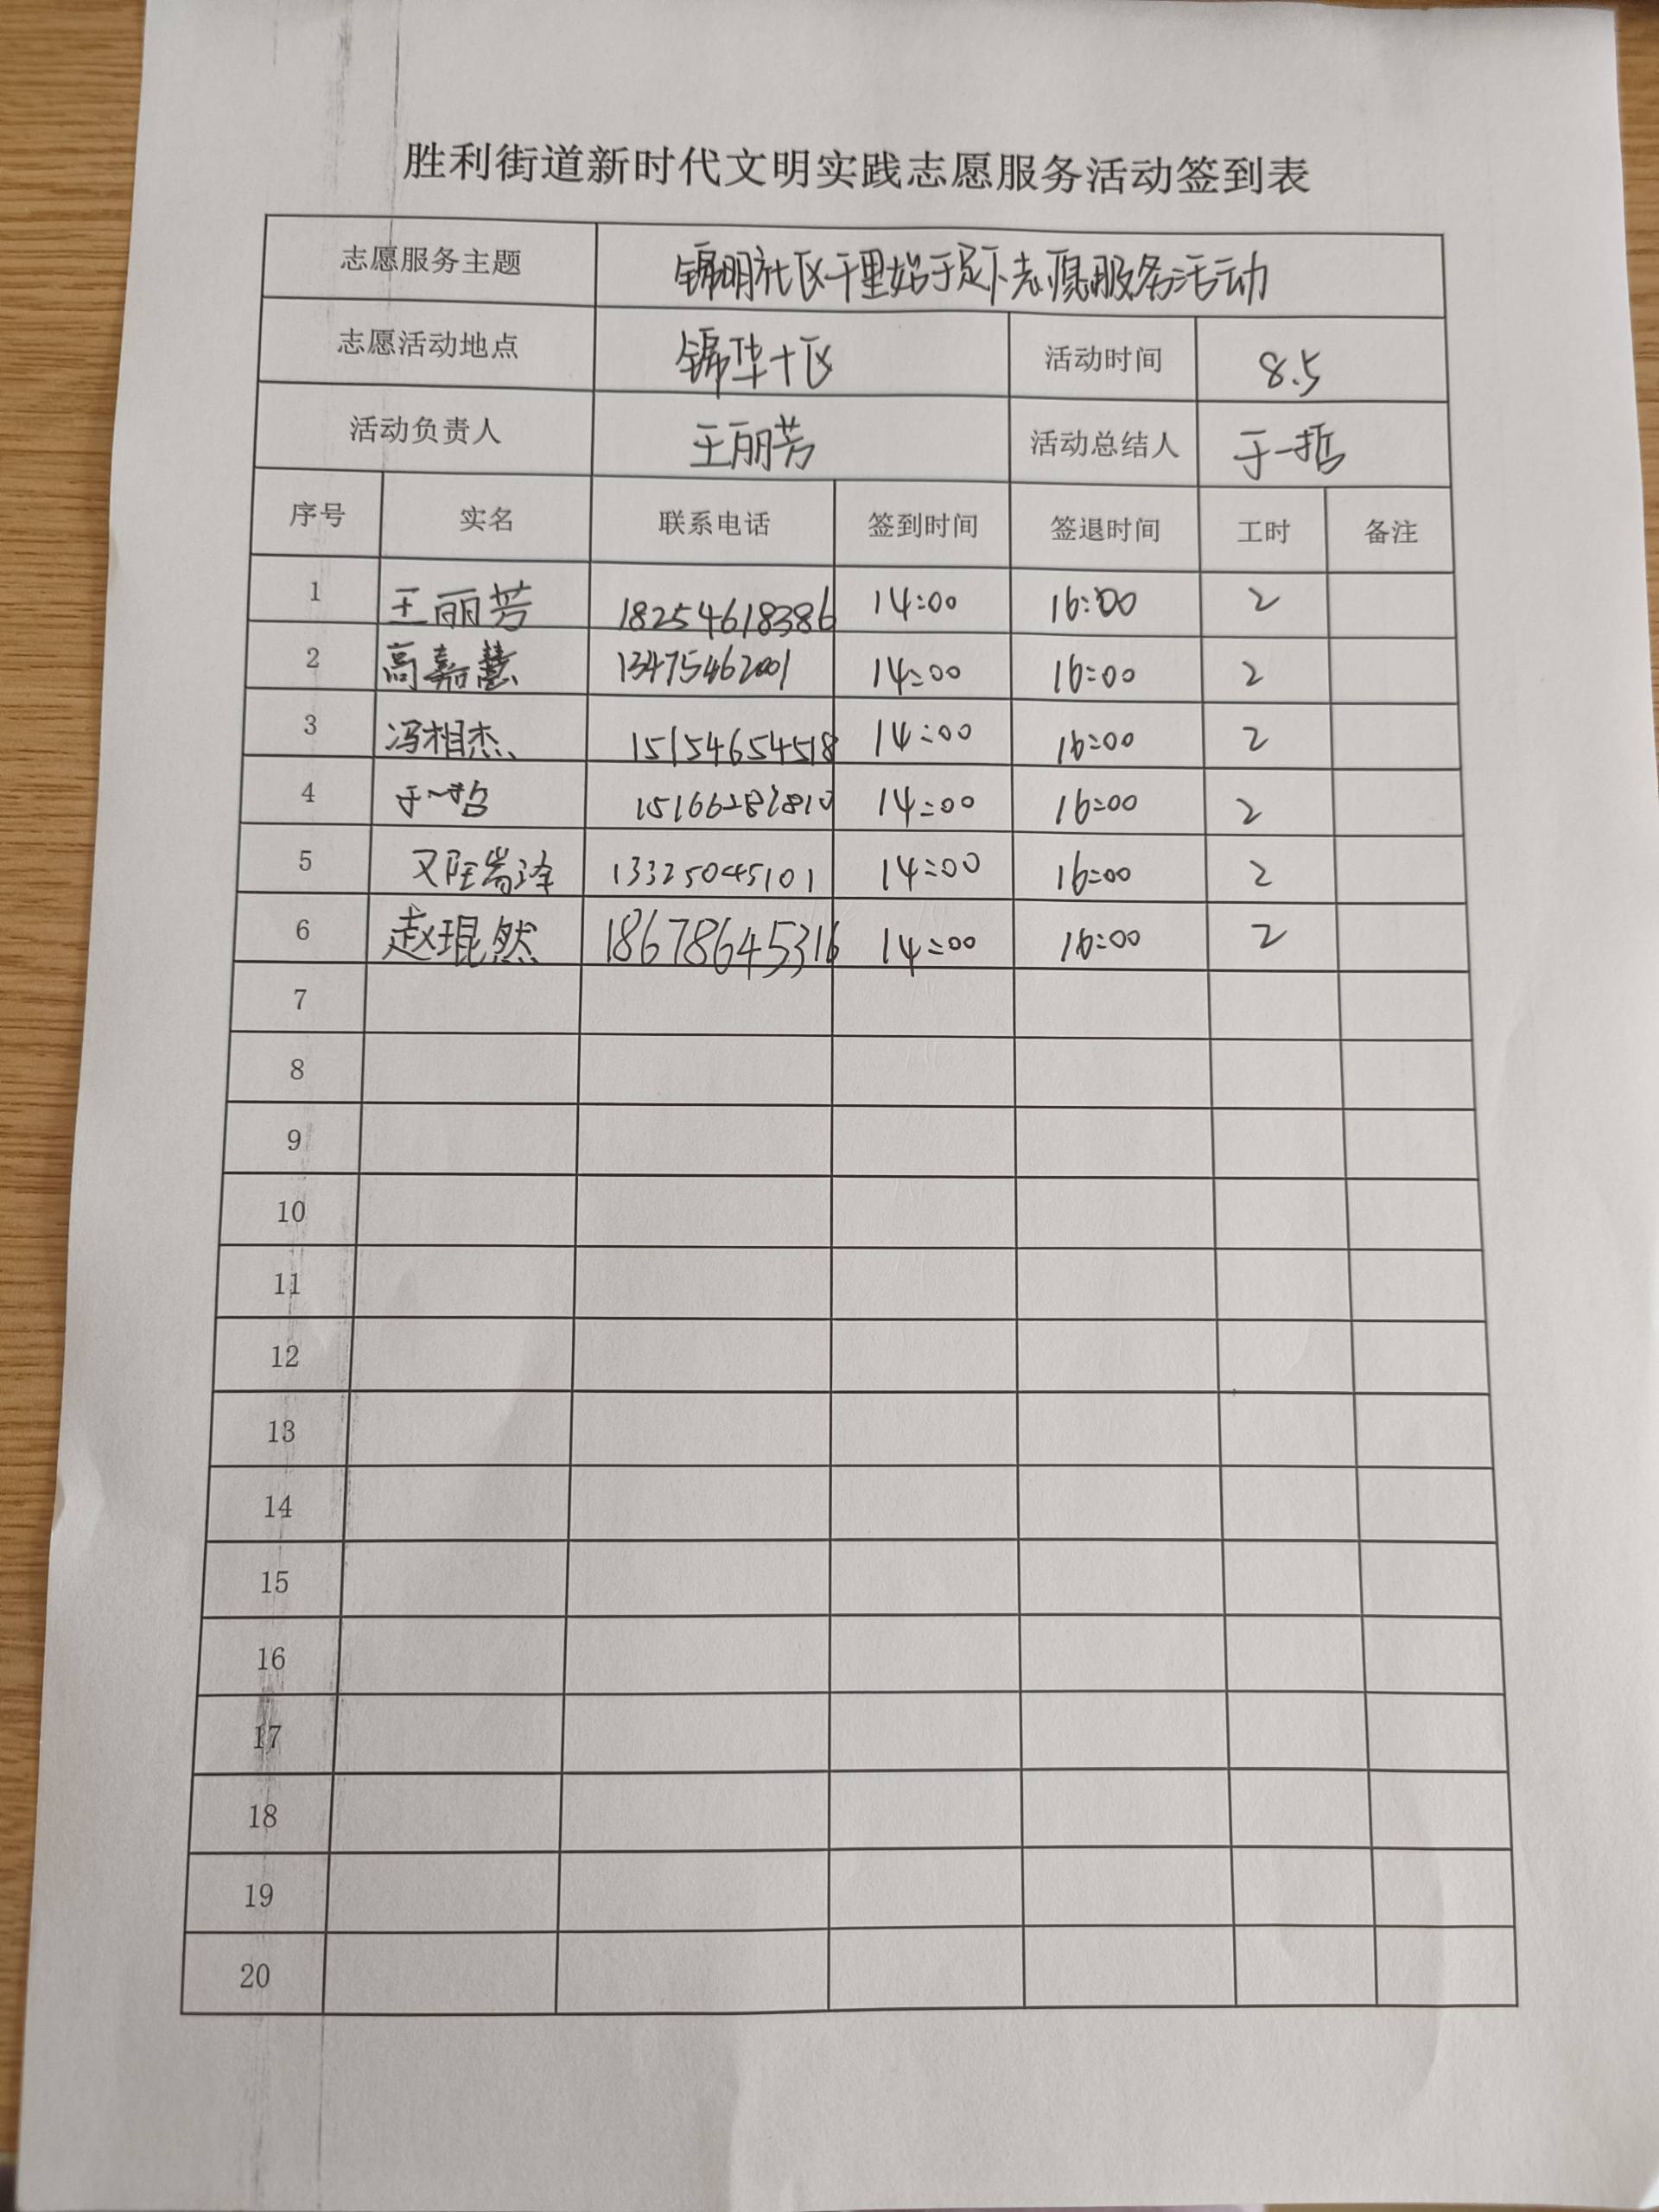 胜利街道新时代文明实践志愿服务活动签到表
志愿服务主题 锦明社区千里始于足下志愿服务活动
志愿活动地点 锦华十区 活动时间 8.5
活动负责人 王丽芳 活动总结人 于一哲
序号 实名 联系电话 签到时间 签退时间 工时 备注
1 王丽芳 18254618386 14:00 16:00 2
2 高嘉慧 13475462001 14:00 16:00 2
3 冯相杰 15154654518 14:00 16:00 2
4 于一哲 14:00 16:00 2
5 13325045101 14:00 16:00 2
6 赵琨然 18678645316 14:00 16:00 2
7
8
9
10
11
12
13
14
15
16
17
18
19
20